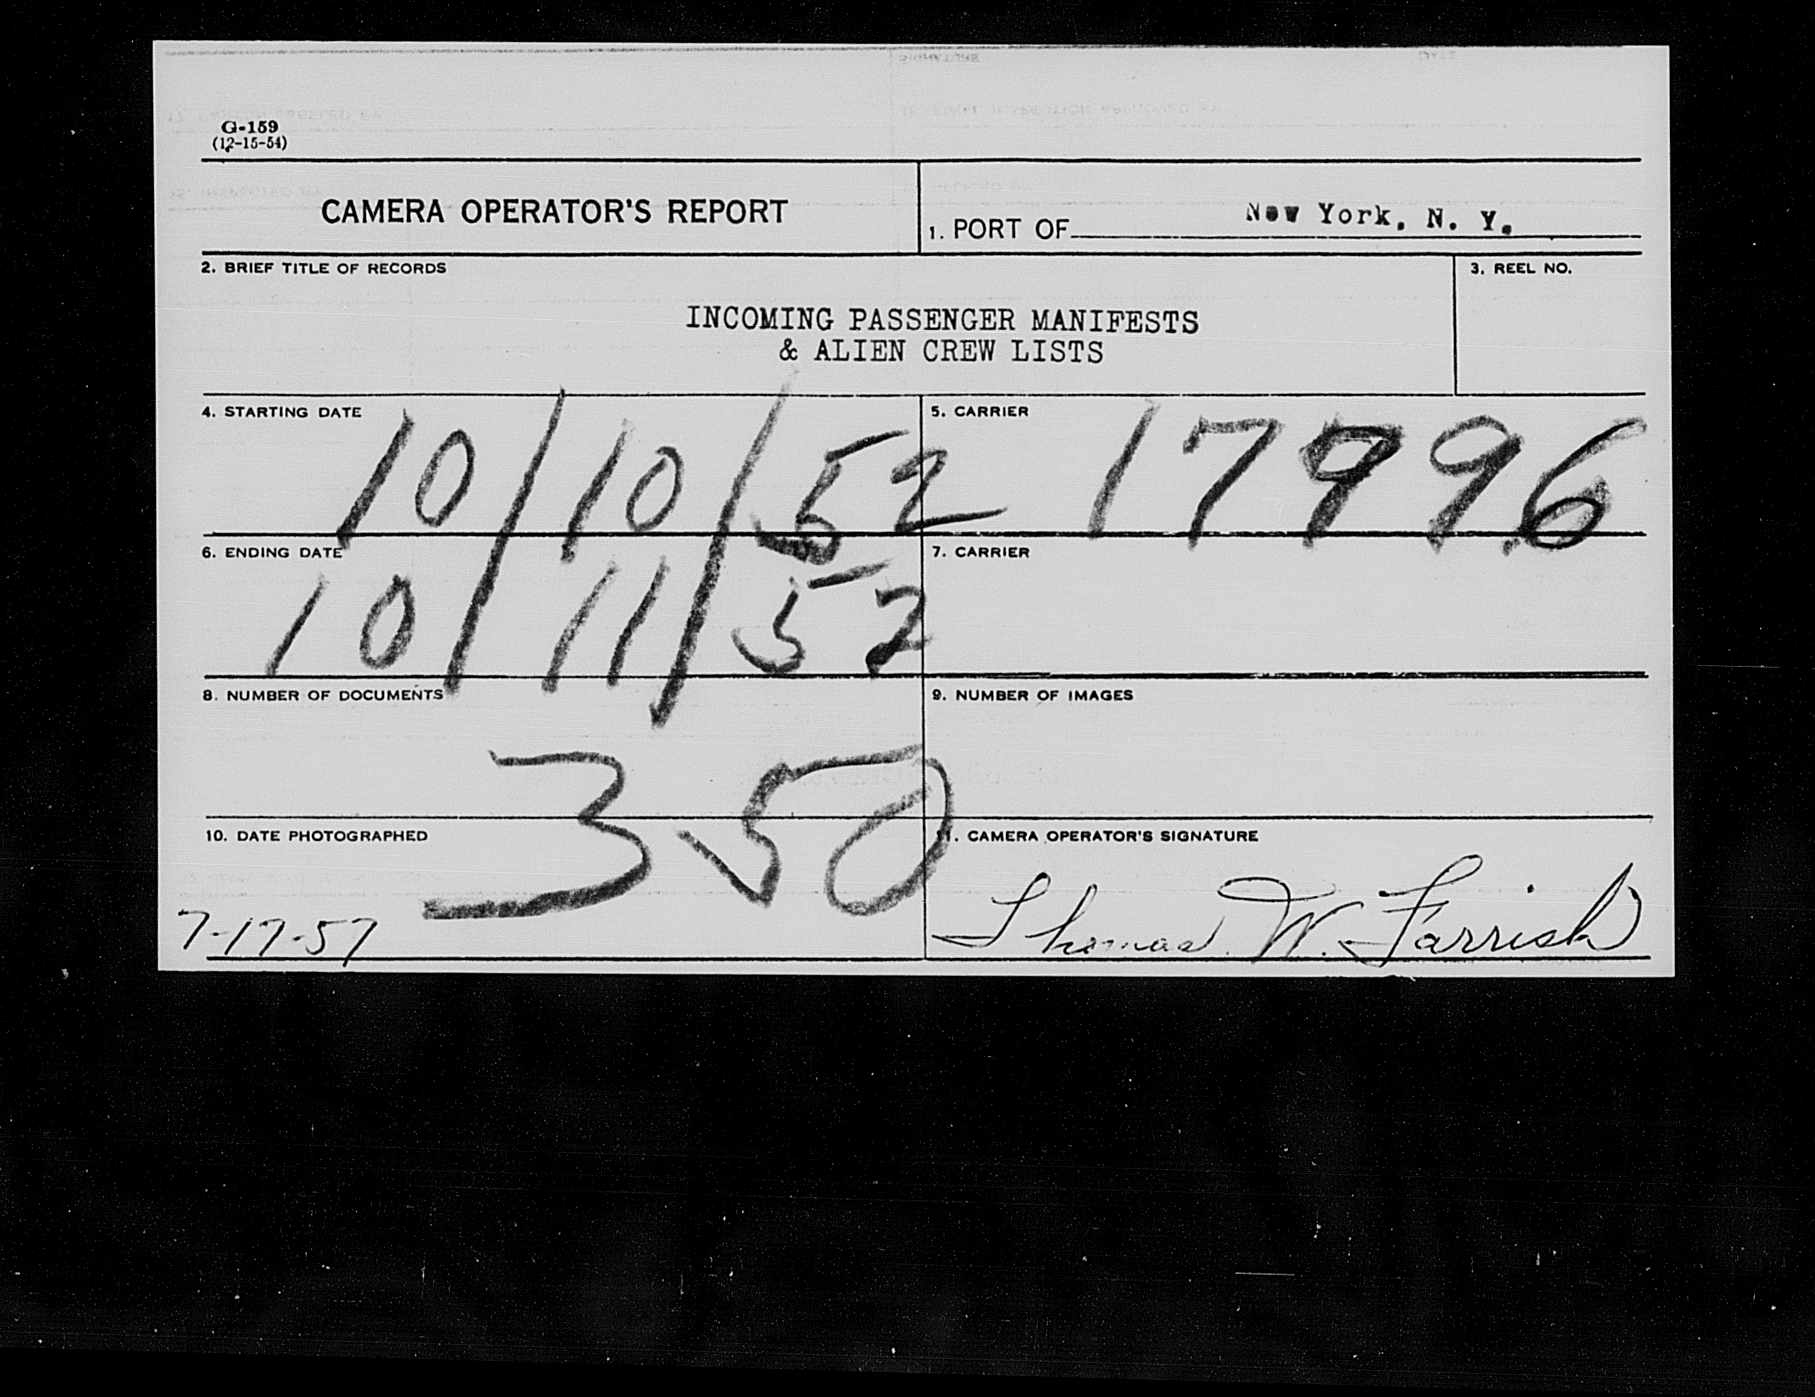 G-159
(12-15-54)
CAMERA OPERATOR'S REPORT
1. PORT OF New York, N. Y.
2. BRIEF TITLE OF RECORDS
3. REEL NO.
INCOMING PASSENGER MANIFESTS
& ALIEN CREW LISTS
4. STARTING DATE
10/10/52
5. CARRIER
17996
6. ENDING DATE
10/11/52
7. CARRIER
8. NUMBER OF DOCUMENTS
350
9. NUMBER OF IMAGES
10. DATE PHOTOGRAPHED
7-17-57
11. CAMERA OPERATOR'S SIGNATURE
Thomas W. Farrish